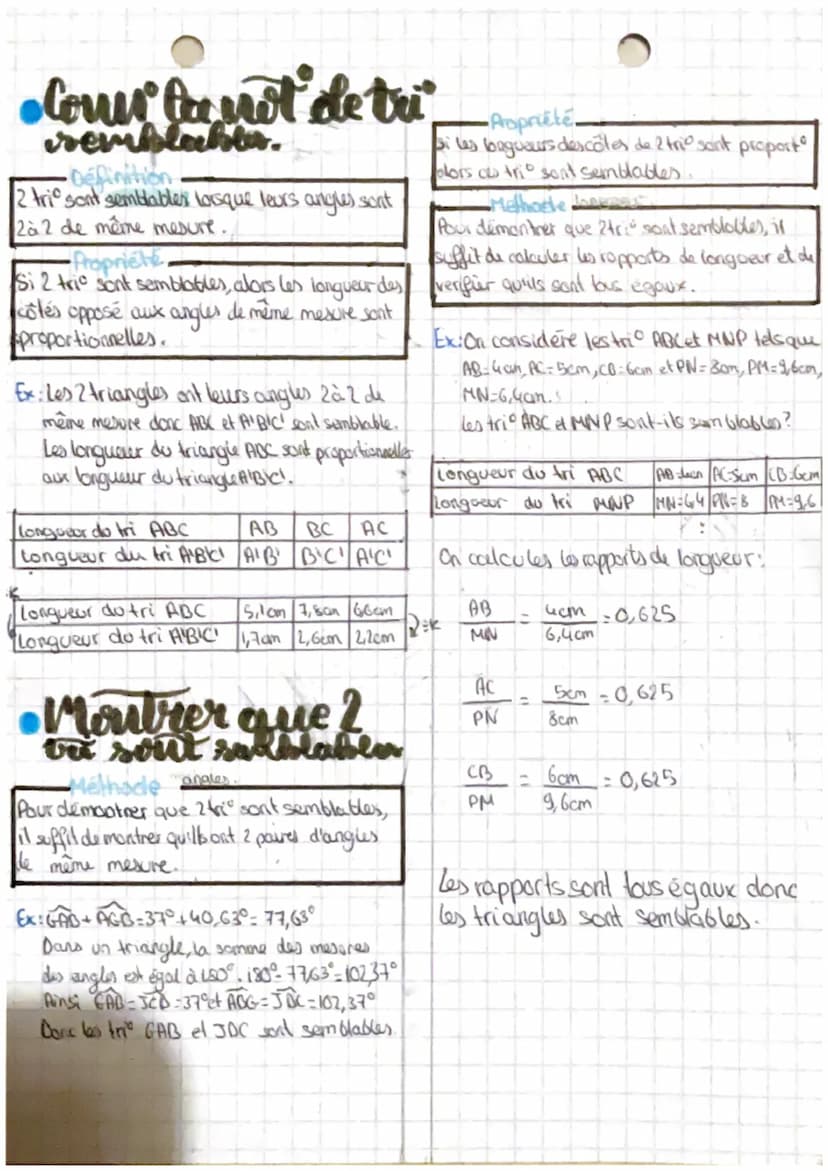 Conn° la not° de tri°
semblables.
Définition
2 tri° sont semblables lorsque leurs angles sont
2à2 de même mesure.
Propriété
Si 2 tri° sont semblables, alors les longueur des
côtés opposé aux angles de même mesure sont
proportionnelles.
Ex: Les 2 triangles ont leurs angles 2à2 de
même mesure donc ABC et A'B'C' sont semblable.
Les longueur du triangle ABC sont proportionnelles
aux longueur du triangle A'B'C'.
Longueur du tri ABC AB BC AC
Longueur du tri A'B'C' A'B' B'C' A'C'
Longueur du tri ABC 5,1cm 7,8cm 6,6cm
Longueur du tri A'B'C' 1,7cm 2,6cm 2,2cm
Montrer que 2
tri sont semblables
Méthode angles.
Pour démontrer que 2 tri° sont semblables,
il suffit de montrer qu'ils ont 2 paires d'angles
de même mesure.
Ex: GAB + AGB = 37° + 40,63° = 77,63°
Dans un triangle, la somme des mesures
des angles est égal à 180°. 180° - 77,63° = 102,37°
Ainsi GAB = JCD = 37° et ABG = JDC = 102,37°
Donc les tri° GAB et JDC sont semblables.
Propriété
Si les longueurs des côtés de 2 tri° sont proport°
alors ces tri° sont semblables.
Méthode longueur
Pour démontrer que 2 tri° sont semblables, il
suffit de calculer les rapports de longueur et de
verifier qu'ils sont tous égaux.
Ex: On considère les tri° ABC et MNP tels que
AB=4cm, AC=5cm, CB=6cm et PN=8cm, PM=9,6cm,
MN=6,4cm.
Les tri° ABC et MNP sont-ils semblables?
Longueur du tri ABC AB=4cm AC=5cm CB=6cm
Longueur du tri MNP MN=6,4 PN=8 PM=9,6
On calcules les rapports de longueur:
AB/MN = 4cm/6,4cm = 0,625
AC/PN = 5cm/8cm = 0,625
CB/PM = 6cm/9,6cm = 0,625
Les rapports sont tous égaux donc
les triangles sont semblables.